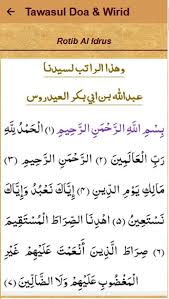 Tawasul Doa & Wirid
Rotib Al Idrus
وهذا الراتب لسيدنا
عبدالله بن ابي بكر العيدروس
بِسْمِ اللَّهِ الرَّحْمَنِ الرَّحِيمِ (١) الْحَمْدُ لِلَّهِ
رَبِّ الْعَالَمِينَ (٢) الرَّحْمَنِ الرَّحِيمِ (٣)
مَالِكِ يَوْمِ الدِّينِ (٤) إِيَّاكَ نَعْبُدُ وَإِيَّاكَ
نَسْتَعِينُ (٥) اهْدِنَا الصِّرَاطَ الْمُسْتَقِيمَ
(٦) صِرَاطَ الَّذِينَ أَنْعَمْتَ عَلَيْهِمْ غَيْرِ
الْمَغْضُوبِ عَلَيْهِمْ وَلَا الضَّالِّينَ (٧)